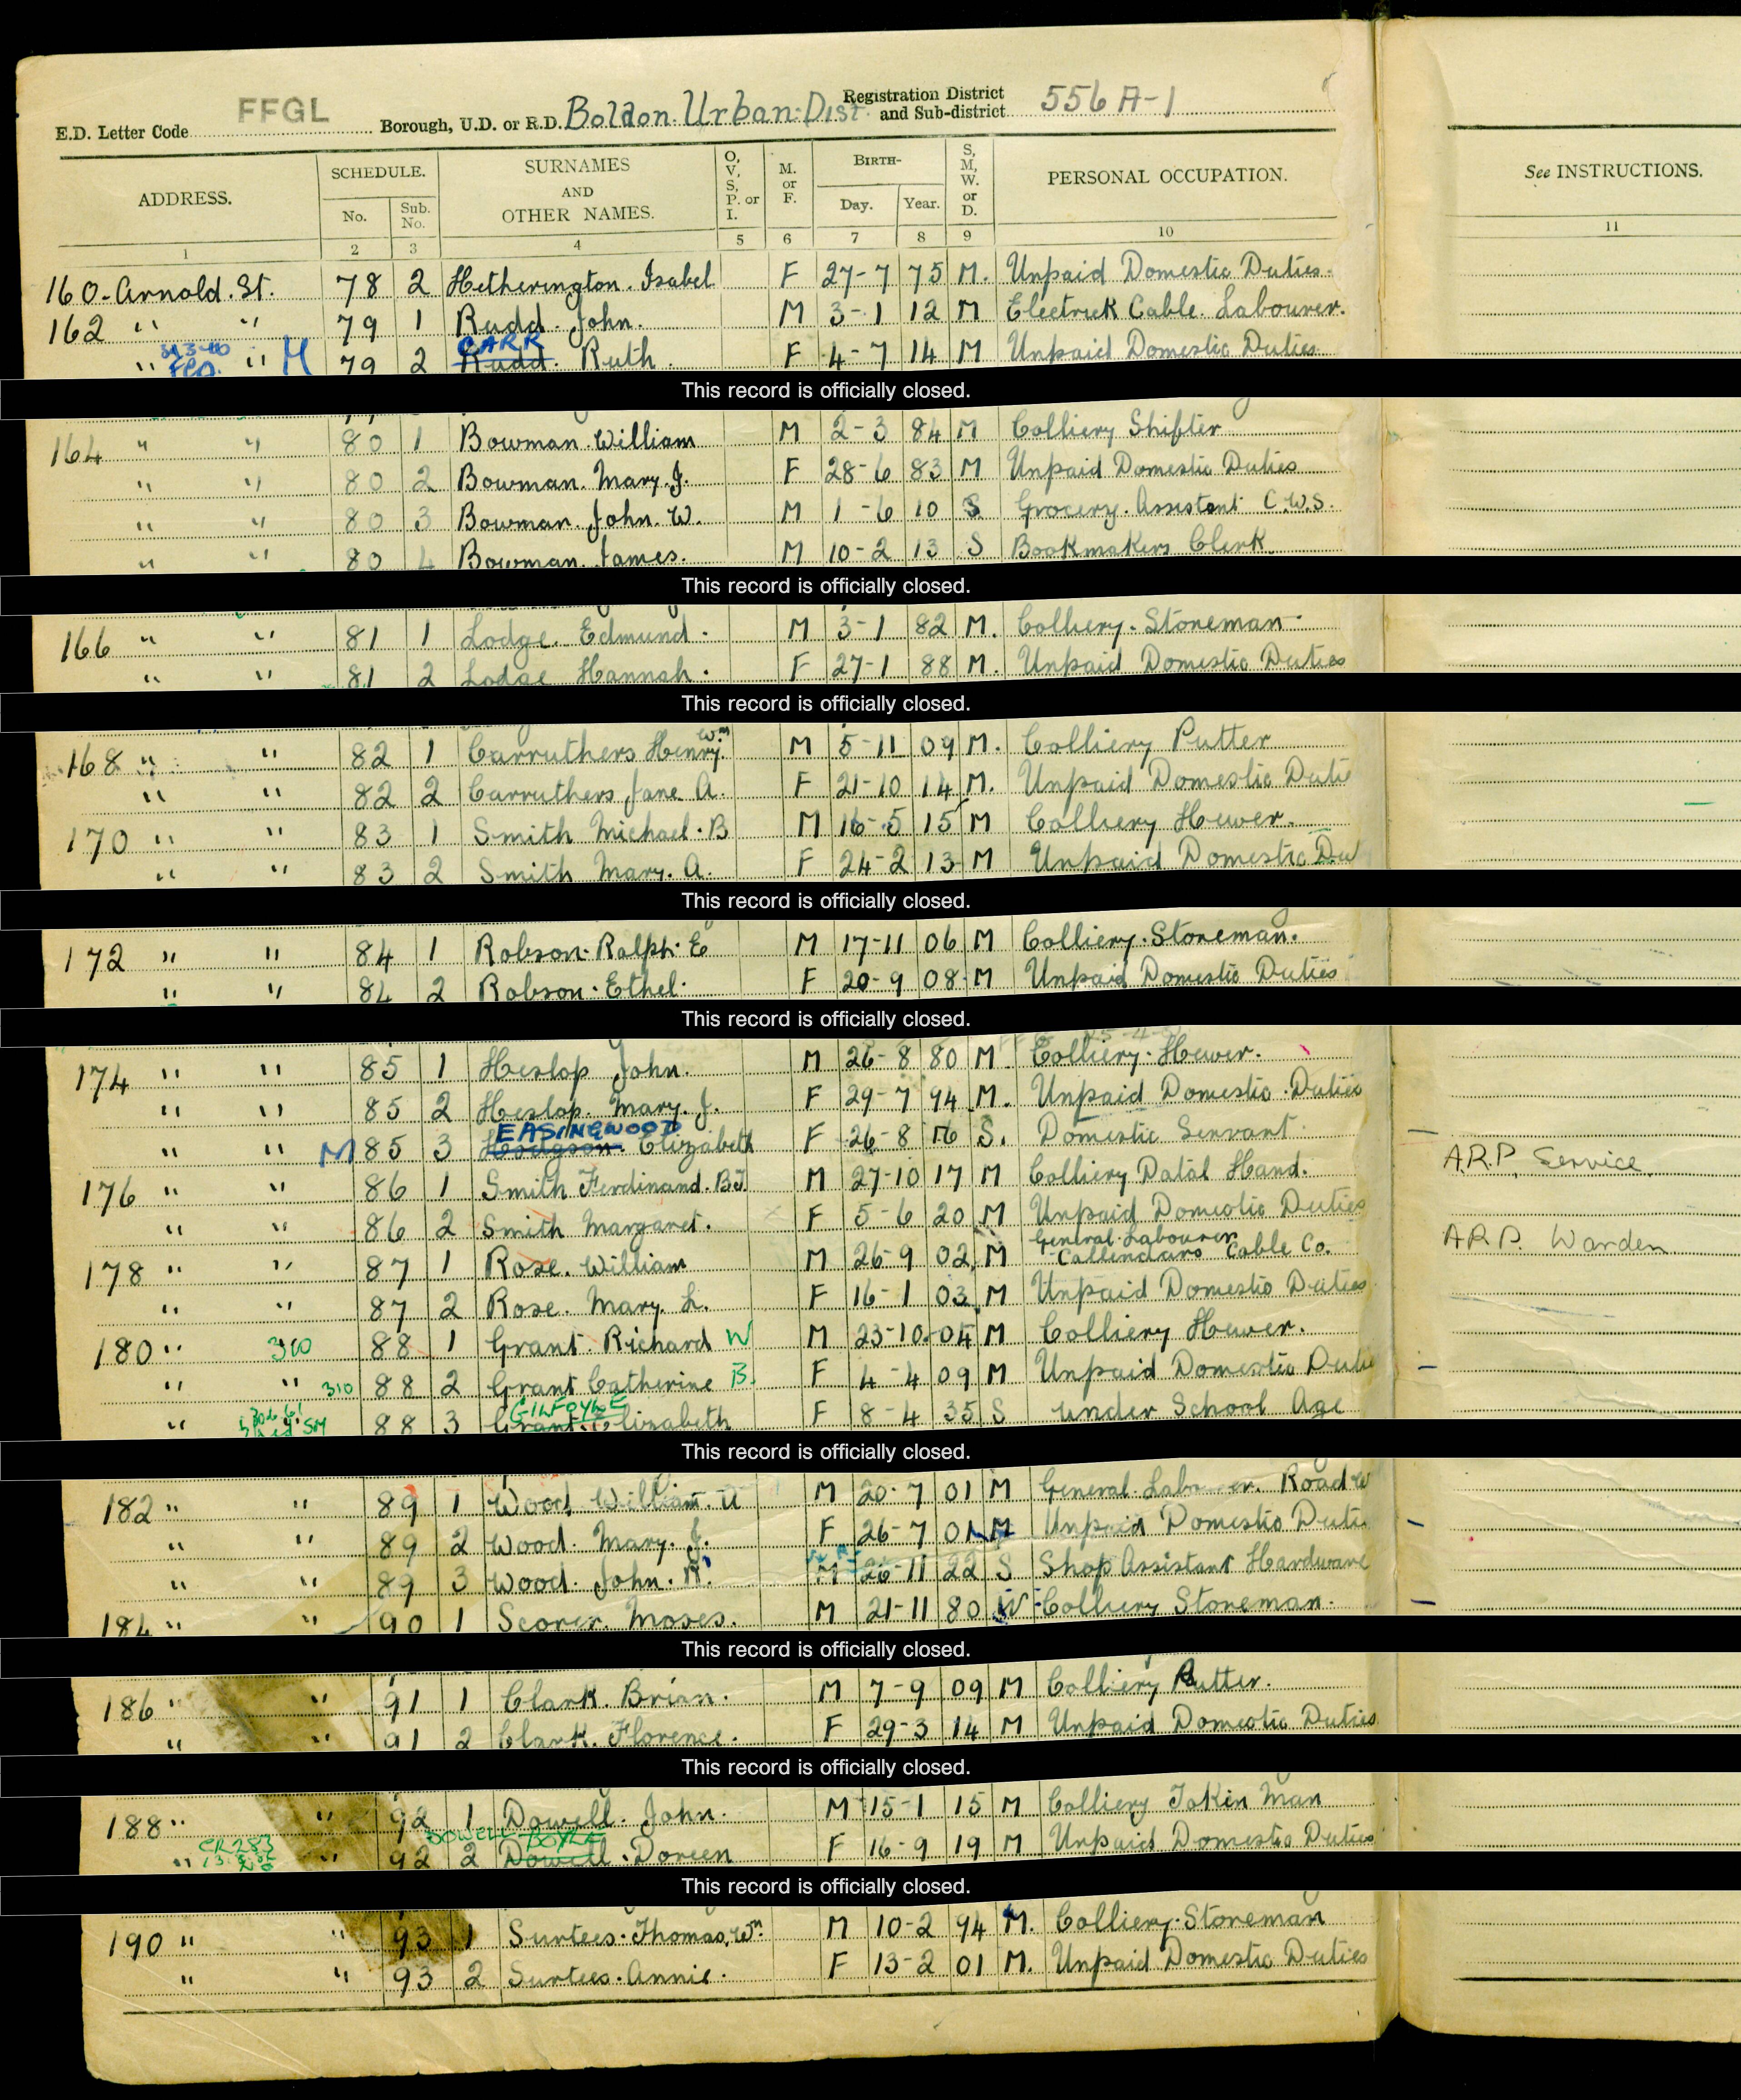 FFGL
E.D. Letter Code Borough, U.D. or R.D. Boldon Urban Dist. Registration District and Sub-district 556 A-1
ADDRESS. SCHEDULE. No. Sub. No. SURNAMES AND OTHER NAMES. O, V, S, P. or I. M. or F. BIRTH- Day. Year. S, M, W. or D. PERSONAL OCCUPATION. See INSTRUCTIONS.
1 2 3 4 5 6 7 8 9 10 11
160 Arnold St. 78 2 Hetherington Isabel F 27-7 75 M. Unpaid Domestic Duties
162 " " 79 1 Rudd John. M 3-1 12 M Electrick Cable Labourer.
CARR
" " M 79 2 Rudd Ruth F 4-7 14 M Unpaid Domestic Duties
This record is officially closed.
164 " " 80 1 Bowman William M 2-3 84 M Colliery Shifter
" " 80 2 Bowman Mary J. F 28-6 83 M Unpaid Domestic Duties
" " 80 3 Bowman John W. M 1-6 10 S Grocery Assistant C.W.S.
" " 80 4 Bowman James. M 10-2 13 S Bookmakers Clerk
This record is officially closed.
166 " " 81 1 Lodge Edmund M 3-1 82 M. Colliery Stoneman
" " 81 2 Lodge Hannah F 27-1 88 M. Unpaid Domestic Duties
This record is officially closed.
168 " " 82 1 Carruthers Henry Wm M 5-11 09 M. Colliery Putter
" " 82 2 Carruthers Jane A. F 21-10 14 M. Unpaid Domestic Dutie
170 " " 83 1 Smith Michael B M 16-5 15 M Colliery Hewer.
" " 83 2 Smith Mary A. F 24-2 13 M Unpaid Domestic Du
This record is officially closed.
172 " " 84 1 Robson Ralph E M 17-11 06 M Colliery Stoneman.
" " 84 2 Robson Ethel F 20-9 08 M Unpaid Domestic Duties
This record is officially closed.
174 " " 85 1 Heslop John. M 26-8 80 M Colliery Hewer.
" " 85 2 Heslop Mary J. F 29-7 94 M. Unpaid Domestic Duties
EASINGWOOD
" " M 85 3 Hodgson Elizabeth F 26-8 16 S. Domestic Servant
A.R.P. Service
176 " " 86 1 Smith Ferdinand B.J. M 27-10 17 M Colliery Datal Hand.
" " 86 2 Smith Margaret. F 5-6 20 M Unpaid Domestic Duties
A.R.P. Warden
178 " " 87 1 Rose William M 26-9 02 M General Labourer Callenders Cable Co.
" " 87 2 Rose Mary L. F 16-1 03 M Unpaid Domestic Duties
180 " 310 88 1 Grant Richard W M 23-10 04 M Colliery Hewer.
" " 310 88 2 Grant Catherine B. F 4-4 09 M Unpaid Domestic Dutie
GILFOYLE
" 88 3 Grant Elizabeth F 8-4 35 S Under School Age
This record is officially closed.
182 " " 89 1 Wood William M 20-7 01 M General Labourer Road W
" " 89 2 Wood Mary J. F 26-7 01 M Unpaid Domestic Dutie
" " 89 3 Wood John M 26-11 22 S Shop Assistant Hardware
184 " " 90 1 Scorer Moses. M 21-11 80 W Colliery Stoneman.
This record is officially closed.
186 " " 91 1 Clark Brian. M 7-9 09 M Colliery Putter.
" " 91 2 Clark Florence. F 29-3 14 M Unpaid Domestic Duties
This record is officially closed.
188 " " 92 1 Dowell John. M 15-1 15 M Colliery Tokin Man
DOWELL-DOYLE
CR283
" " 92 2 Dowell Doreen F 16-9 19 M Unpaid Domestic Duties
This record is officially closed.
190 " " 93 1 Surtees Thomas Wm. M 10-2 94 M. Colliery Stoneman
" " 93 2 Surtees Annie. F 13-2 01 M. Unpaid Domestic Duties